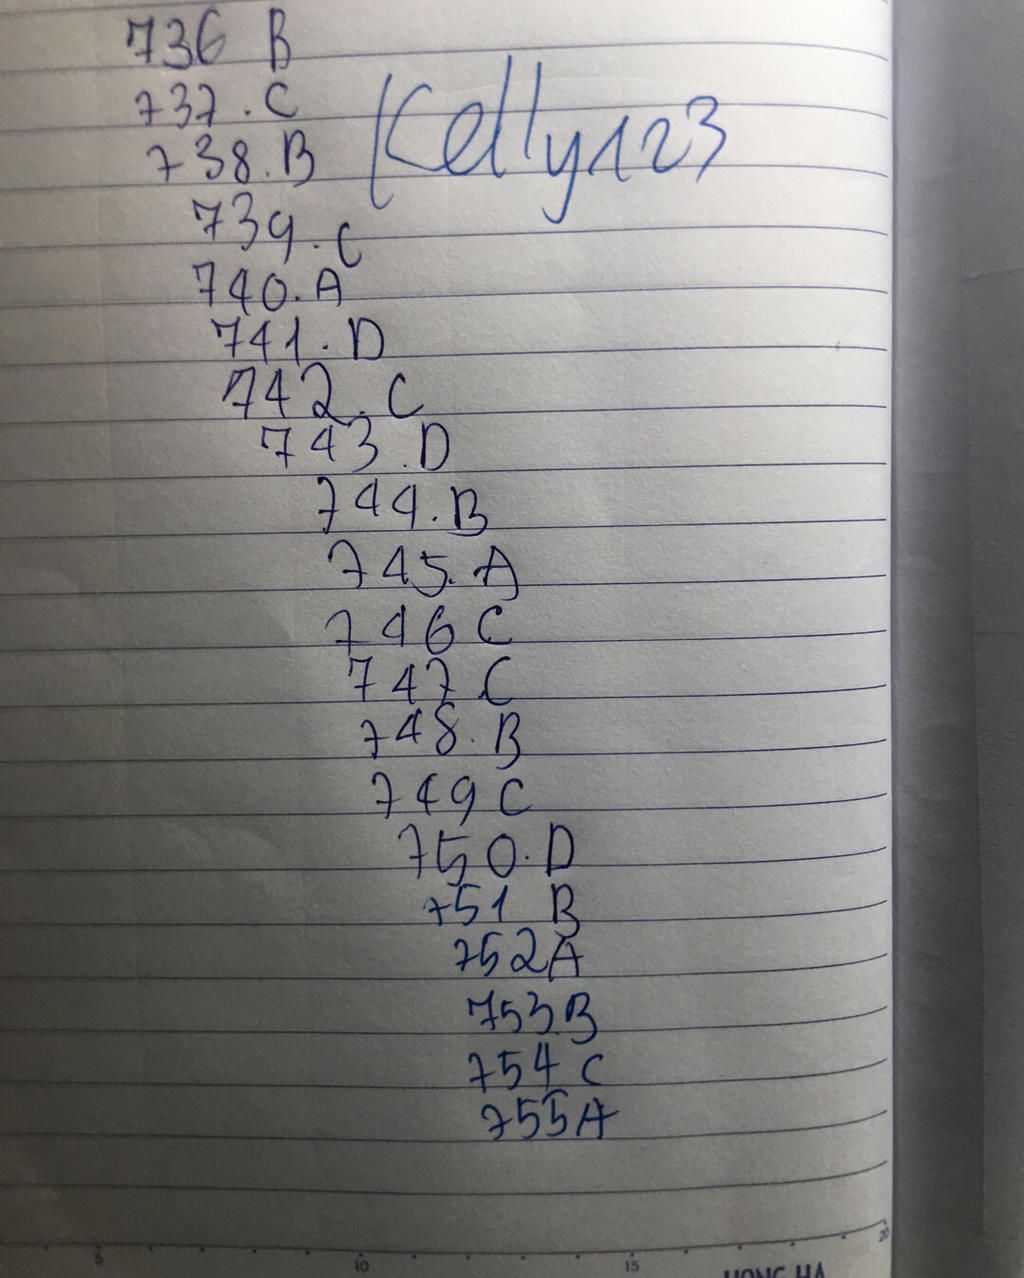 736 B
737. C
Kelly123
738. B
739. C
740. A
741. D
742. C
743. D
744. B
745. A
746 C
747 C
748. B
749 C
750. D
751 B
752 A
753 B
754 C
755 A
5 10 15 20
HONG HA